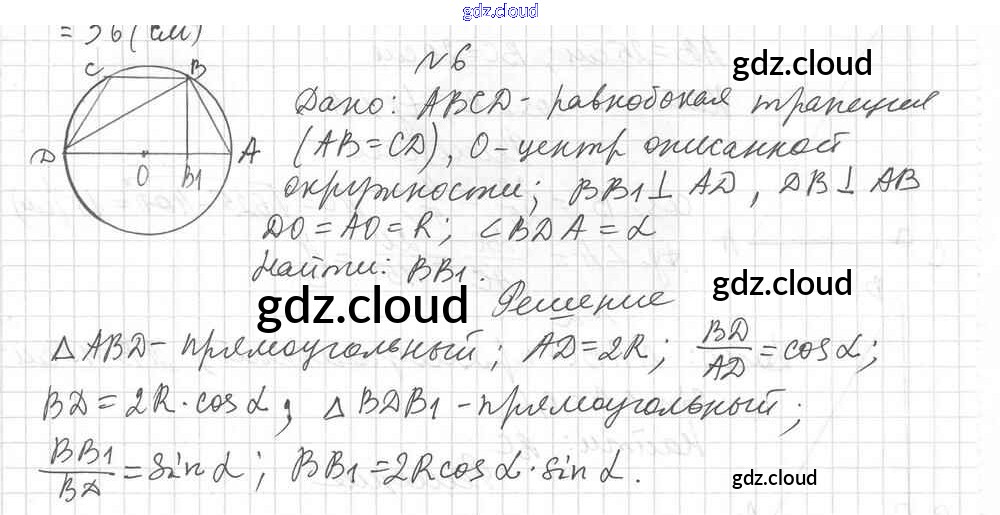 gdz.cloud
= 36 (см)
№6
gdz.cloud
C B
D O B1 A
Дано: ABCD - равнобокая трапеция
(AB = CD), O - центр описанной
окружности; BB1 ⊥ AD, DB ⊥ AB
DO = AO = R; ∠BDA = α
Найти: BB1.
gdz.cloud
gdz.cloud
Решение
△ ABD - прямоугольный; AD = 2R; BD/AD = cos α;
BD = 2R · cos α; △ BDB1 - прямоугольный;
BB1/BD = sin α; BB1 = 2R cos α · sin α.
gdz.cloud